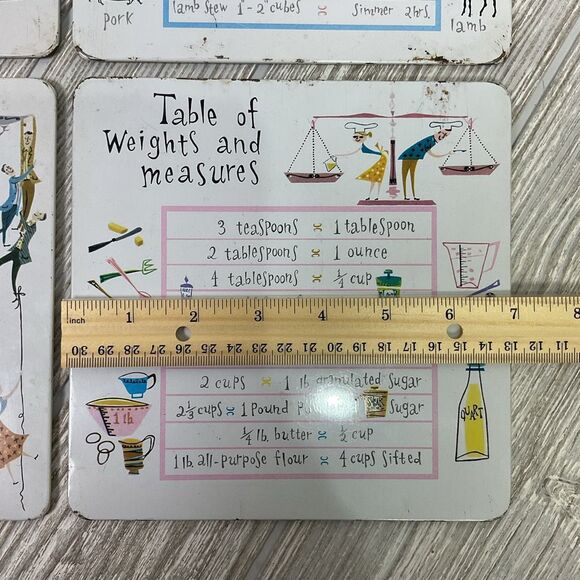 pork
lamb stew 1" - 2" cubes simmer 2 hrs.
lamb
Table of
Weights and
measures
3 teaspoons = 1 tablespoon
2 tablespoons = 1 ounce
4 tablespoons = 1/4 cup
inch 1 2 3 4 5 6 7 8
30 29 28 27 26 25 24 23 22 21 20 19 18 17 16 15 14 13 12 11
2 cups = 1 lb. granulated sugar
2 1/3 cups = 1 pound sugar
1/4 lb. butter = 1/2 cup
1 lb. all-purpose flour = 4 cups sifted
1 lb.
QUART